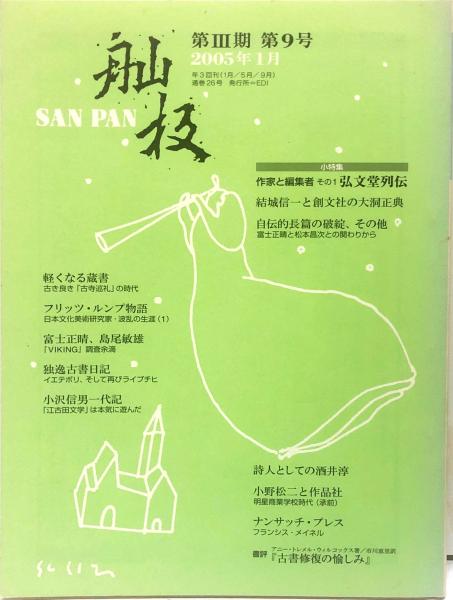 舢板
SAN PAN
第Ⅲ期 第9号
2005年1月
年3回刊（1月／5月／9月）
通巻26号 発行所=EDI
小特集
作家と編集者 その1 弘文堂列伝
結城信一と創文社の大洞正典
自伝的長篇の破綻、その他
富士正晴と松本昌次との関わりから
軽くなる蔵書
古き良き「古寺巡礼」の時代
フリッツ・ルンプ物語
日本文化美術研究家・波乱の生涯（1）
富士正晴、島尾敏雄
『VIKING』調査余滴
独逸古書日記
イエテボリ、そして再びライプチヒ
小沢信男一代記
「江古田文学」は本気に遊んだ
詩人としての酒井淳
小野松二と作品社
明星商業学校時代（承前）
ナンサッチ・プレス
フランシス・メイネル
書評 アニー・トレメル・ウィルコックス著／市川恵里訳
『古書修復の愉しみ』